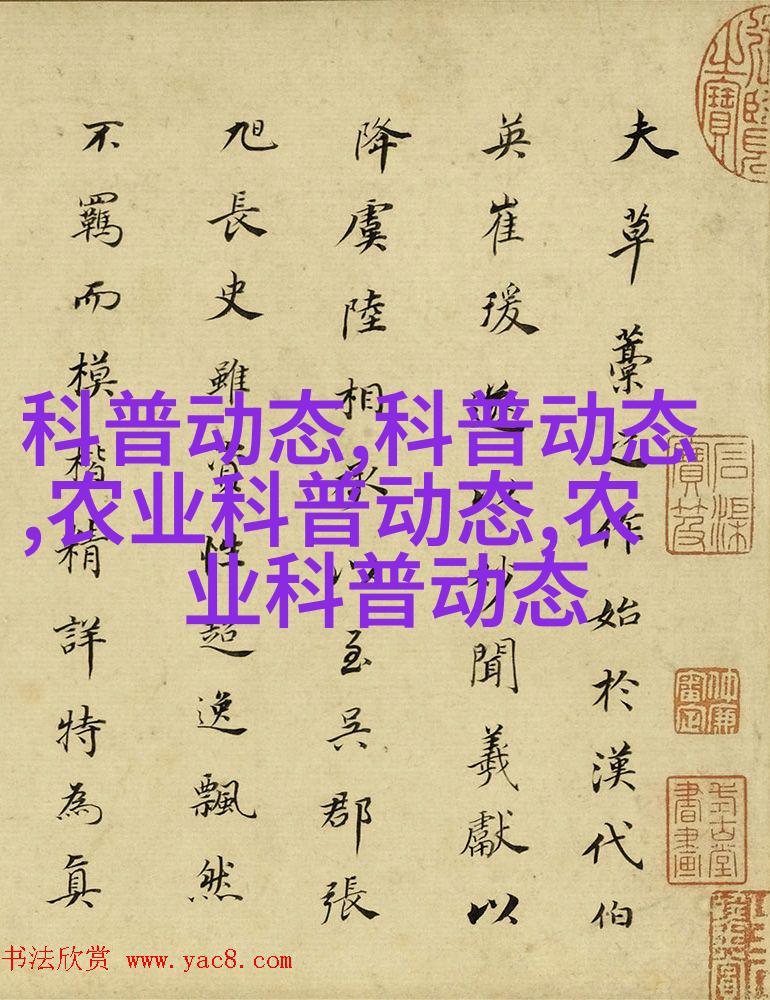 夫草藁之作始於漢代伯
英崔瑗遂以妙聞羲獻以
降虞陸相承以至吳郡張
旭長史雖資性超逸飄然
不羈而模楷精詳特為真
科普动态,科普动态
,农业科普动态,农
业科普动态
石渠寶笈
书法欣赏 www.yac8.com